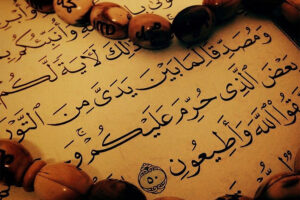 وَأُنَبِّئُكُم
ذَٰلِكَ لَآيَةً لَّكُمْ
وَمُصَدِّقًا لِّمَا بَيْنَ يَدَىَّ مِنَ التَّوْر
بَعْضَ الَّذِى حُرِّمَ عَلَيْكُمْ وَ
تَّقُوا اللَّهَ وَأَطِيعُونِ ٥٠